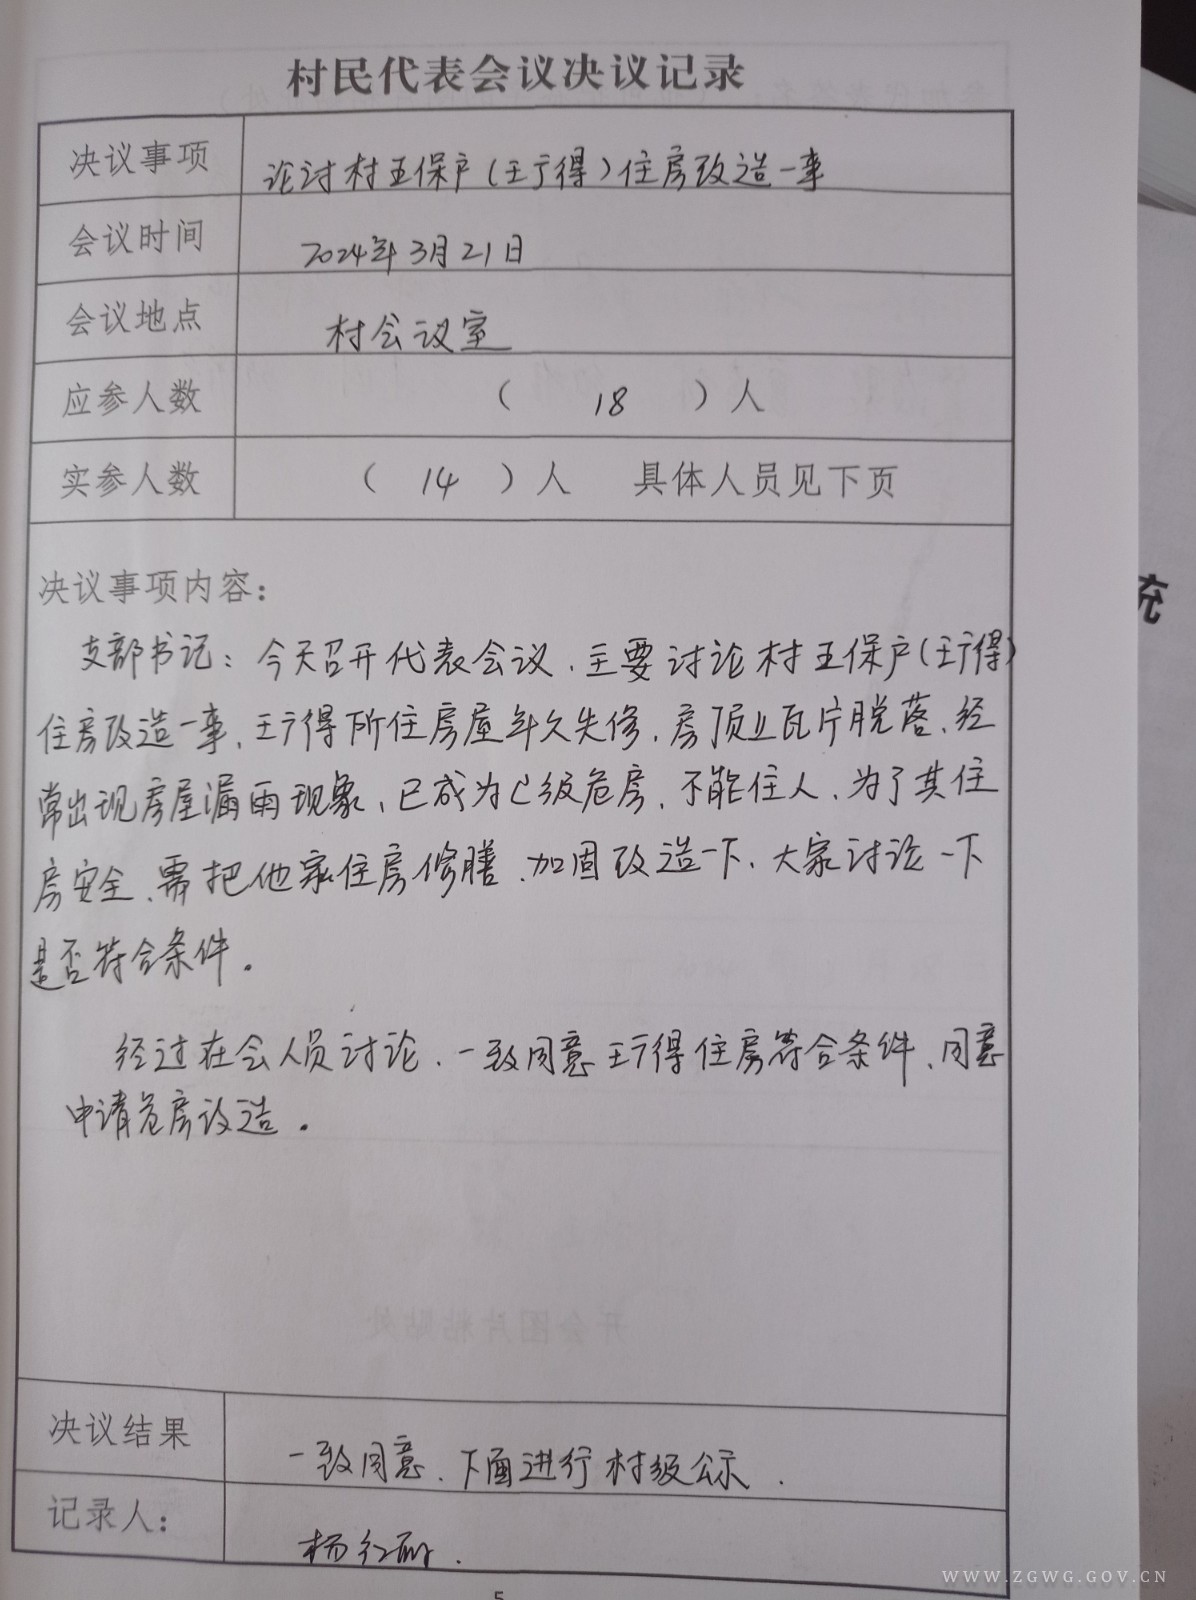 村民代表会议决议记录
决议事项 论讨村五保户(王于得)住房改造一事
会议时间 2024年3月21日
会议地点 村会议室
应参人数 ( 18 )人
实参人数 ( 14 )人 具体人员见下页
决议事项内容:
支部书记:今天召开代表会议、主要讨论村五保户(王于得)
住房改造一事、王于得所住房屋年久失修、房顶上瓦片脱落、经
常出现房屋漏雨现象、已成为C级危房、不能住人、为了其住
房安全、需把他家住房修膳、加固改造一下、大家讨论一下
是否符合条件。
经过在会人员讨论、一致同意王于得住房符合条件、同意
申请危房改造。
决议结果 一致同意、下面进行村级公示.
记录人: 杨红
5
充
WWW.ZGWG.GOV.CN